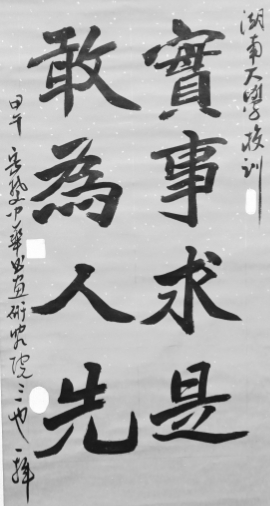 湖南大學校訓
實事求是
敢為人先
甲午 岳 中華書畫術 院 三一也 拜